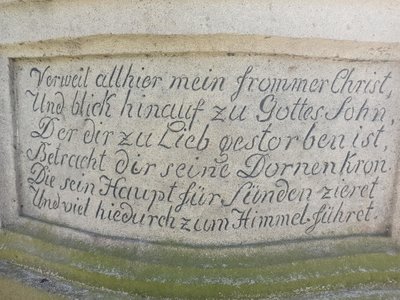 Verweil allhier mein frommer Christ,
Und blick hinauf zu Gottes Sohn,
Der dir zu Lieb gestorben ist,
Betracht dir seine Dornenkron.
Die sein Haupt für Sünden zieret
Und viel hiedurch zum Himmel führet.